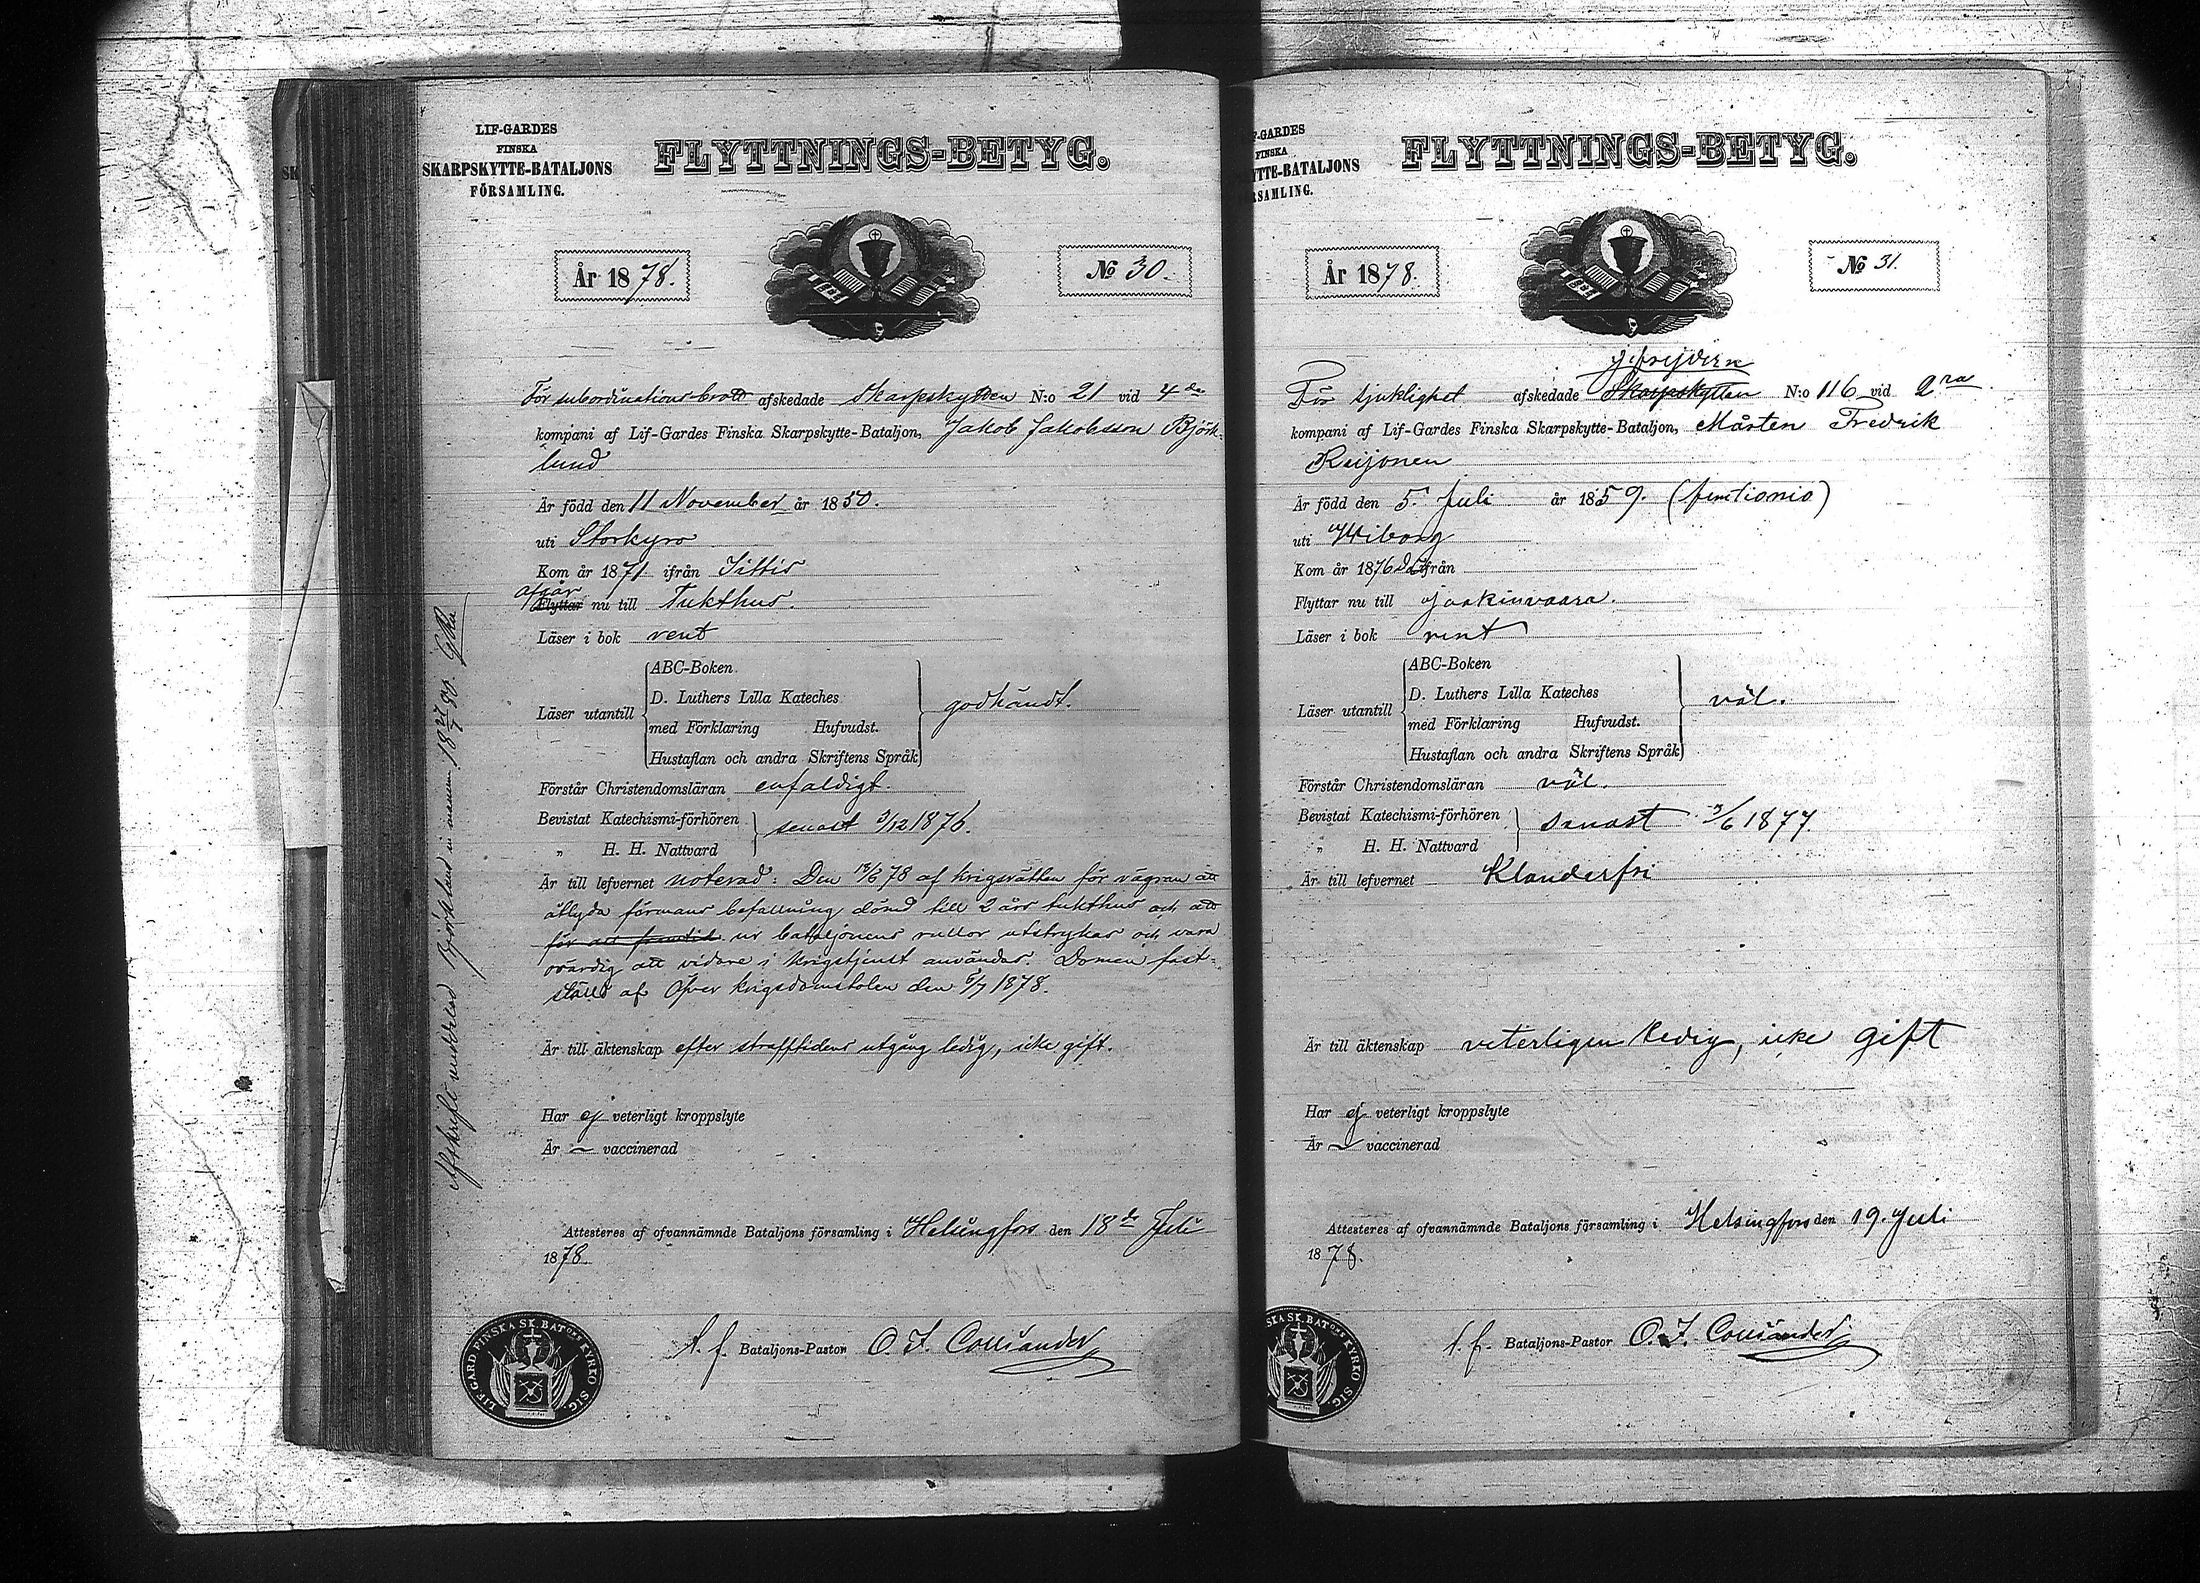 LIF-GARDES
FINSKA
SKARPSKYTTE-BATALJONS
FÖRSAMLING.
FLYTTNINGS-BETYG.
År 1878.
№ 30.
För subordinations-brott afskedade Skarpskytten N:o 21 vid 4de
kompani af Lif-Gardes Finska Skarpskytte-Bataljon, Jakob Jakobsson Björk-
lund
Är född den 11 November år 1850.
uti Storkyro
Kom år 1871 ifrån Jittis
afgår
Flyttar nu till Tukthus.
Läser i bok rent
Läser utantill
ABC-Boken
D. Luthers Lilla Kateches
med Förklaring Hufvudst.
Hustaflan och andra Skriftens Språk
godkändt.
Förstår Christendomsläran enfaldigt.
Bevistat Katechismi-förhören
„ H. H. Nattvard
senast 3/12 1876.
Är till lefvernet noterad: Den /6 78 af krigsrätten för vägran att
åtlyda förmans befallning dömd till 2 års tukthus och att
för att framtid ur bataljonens rullor utstrykas och vara
ovärdig att vidare i krigstjenst användas. Domen fast-
ställd af Öfver krigsdomstolen den 5/7 1878.
Är till äktenskap efter strafftidens utgång ledig, icke gift.
Har ej veterligt kroppslyte
Är vaccinerad
Attesteres af ofvannämnde Bataljons församling i Helsingfors den 18de Juli
1878.
t. f. Bataljons-Pastor O. F. Colliander
LIF-GARD FINSKA SK. BATONS KYRKO SIG.
Afskrift meddelad Björklund in manum 18 27/7 80.
F-GARDES
FINSKA
TTE-BATALJONS
RSAMLING.
FLYTTNINGS-BETYG.
År 1878.
№ 31.
För sjuklighet afskedade Skarpskytten N:o 116 vid 2ra
kompani af Lif-Gardes Finska Skarpskytte-Bataljon, Mårten Fredrik
Reijonen
Är född den 5. Juli år 1859.
uti Wiborg
Kom år 1876 ifrån
Flyttar nu till Jaakinvaara.
Läser i bok rent
Läser utantill
ABC-Boken
D. Luthers Lilla Kateches
med Förklaring Hufvudst.
Hustaflan och andra Skriftens Språk
väl.
Förstår Christendomsläran väl.
Bevistat Katechismi-förhören
„ H. H. Nattvard
senast 3/6 1877.
Är till lefvernet Klanderfri
Är till äktenskap veterligen ledig, icke gift
Har ej veterligt kroppslyte
Är vaccinerad
Attesteres af ofvannämnde Bataljons församling i Helsingfors den 19. Juli
1878.
t. f. Bataljons-Pastor O. F. Colliander
SKA SK. BATONS KYRKO SIG.